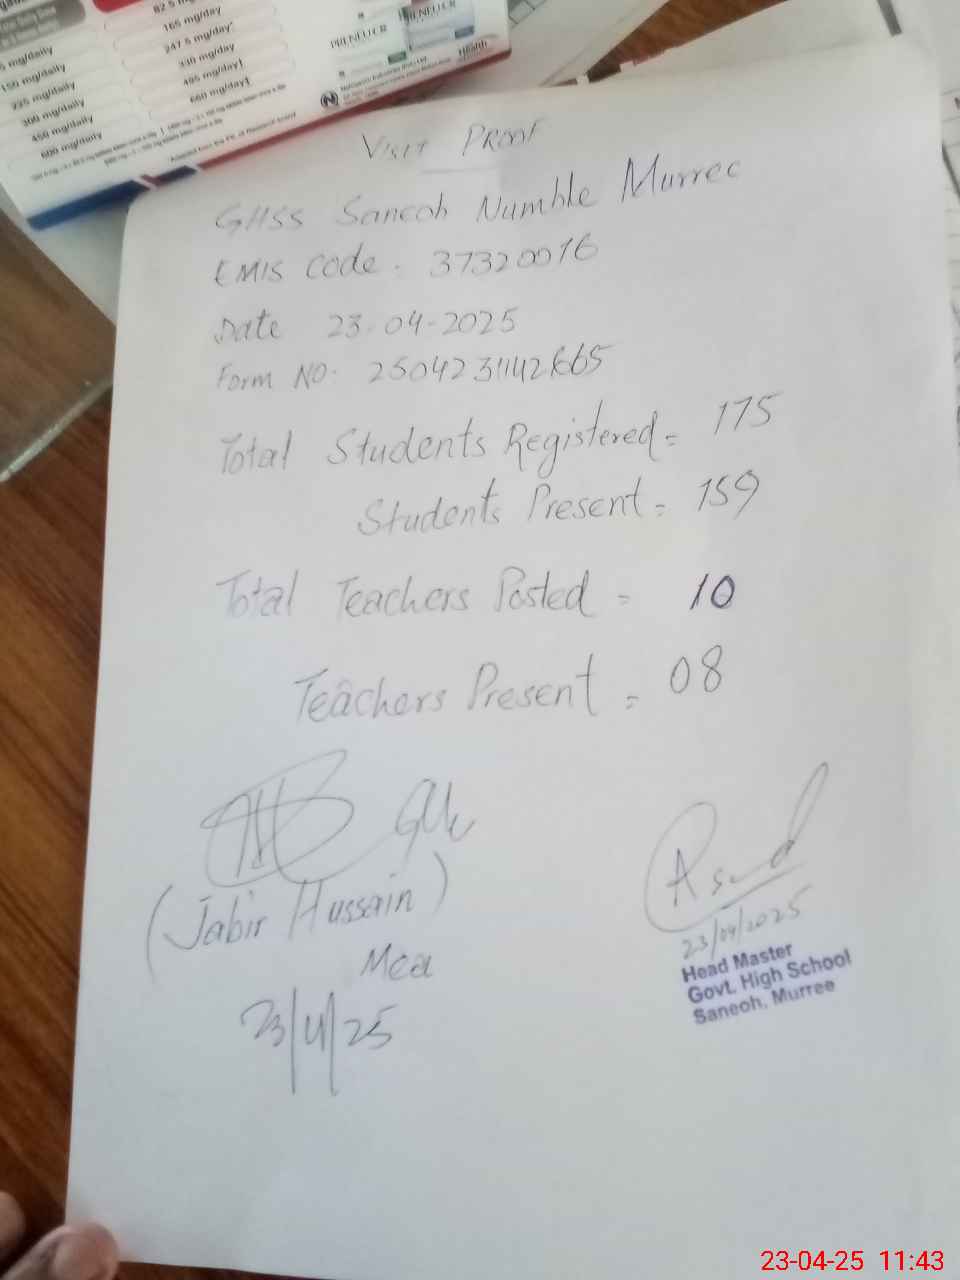 82.5 mg
165 mg/day
247.5 mg/day*
330 mg/day
495 mg/day†
660 mg/day‡
mg/daily
150 mg/daily
225 mg/daily
300 mg/daily
450 mg/daily
600 mg/daily
Health
VISIT PROOF
GHSS Saneoh Numble Murree
EMIS Code. 37320016
Date 23-04-2025
Form NO.
Total Students Registered = 175
Students Present = 159
Total Teachers Posted = 10
Teachers Present = 08
(Jabir Hussain)
Mea
23/4/25
Asad
23/04/2025
Head Master
Govt. High School
Saneoh, Murree
23-04-25 11:43